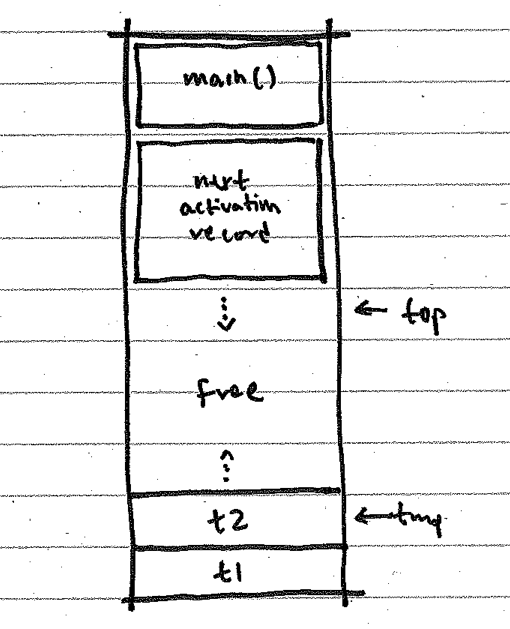 main()
next
activation
record
← top
free
t2
← tmp
t1